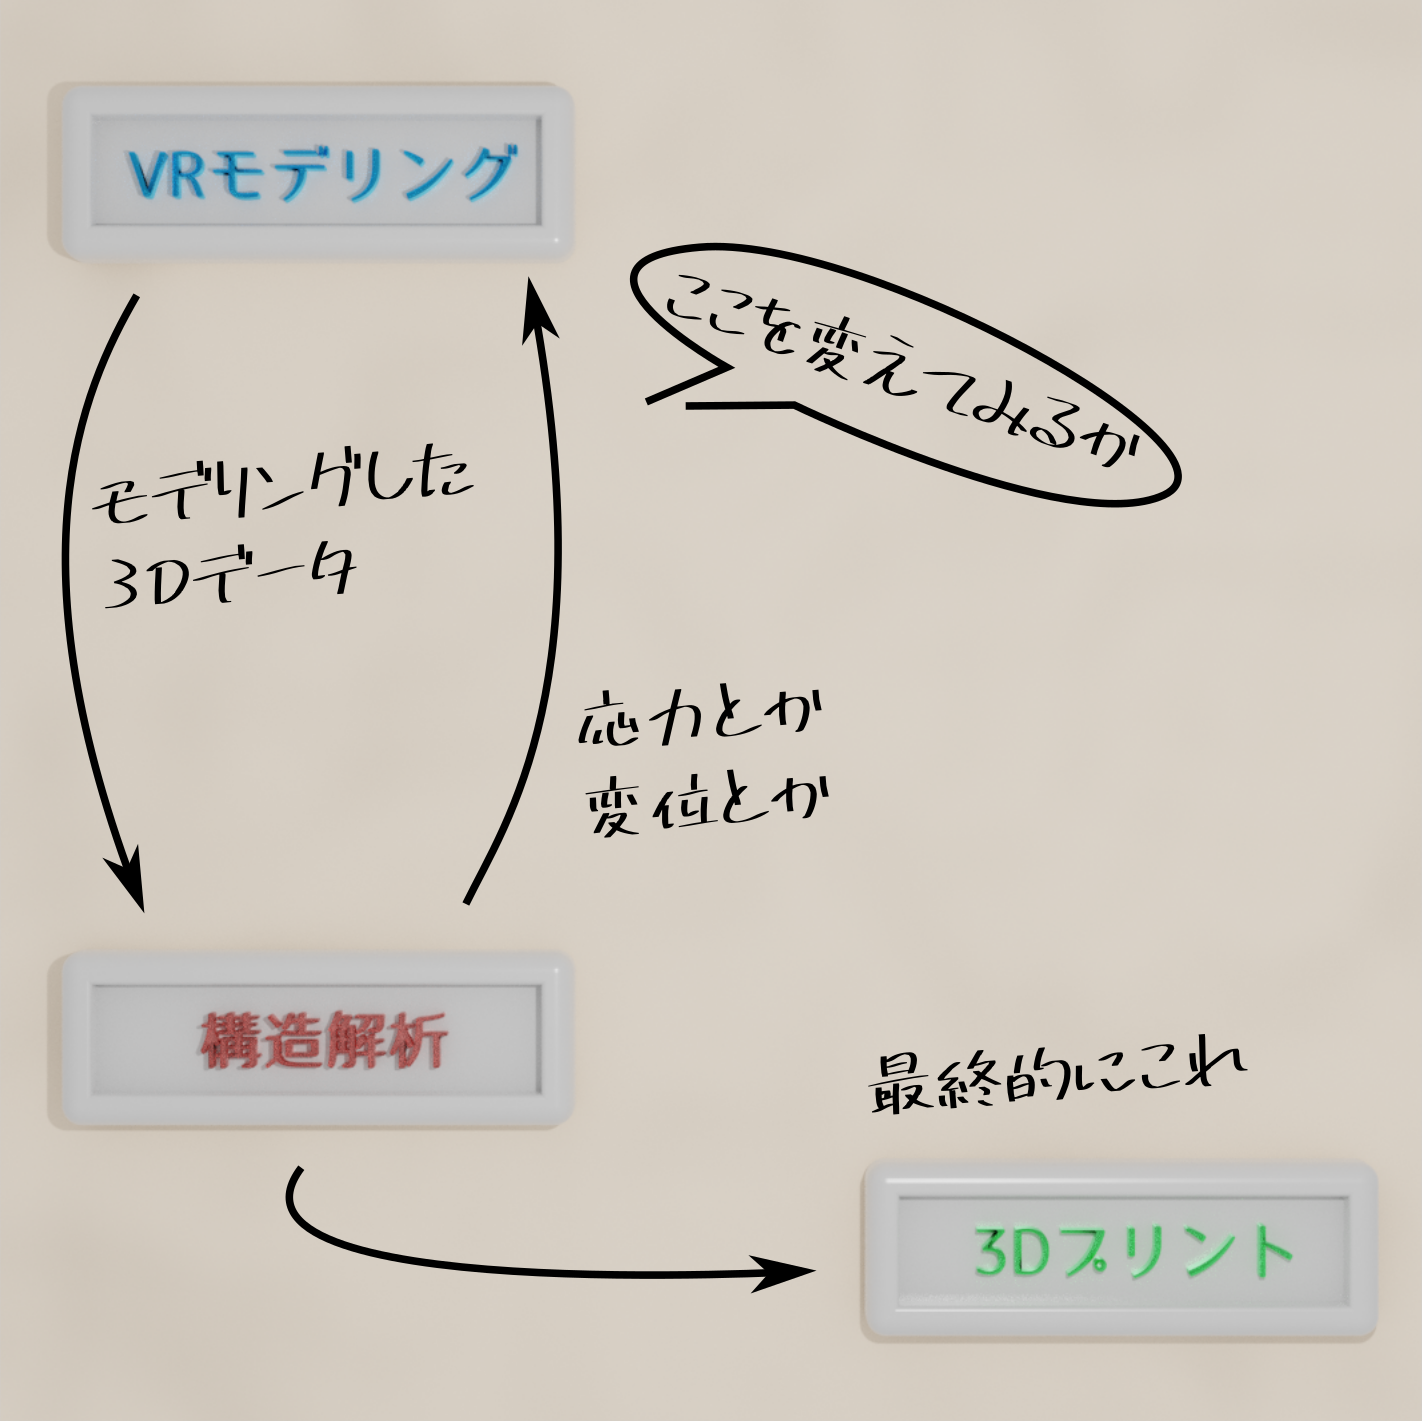 VRモデリング
ここを変えてみるか
モデリングした
3Dデータ
応力とか
変位とか
構造解析
最終的にこれ
3Dプリント